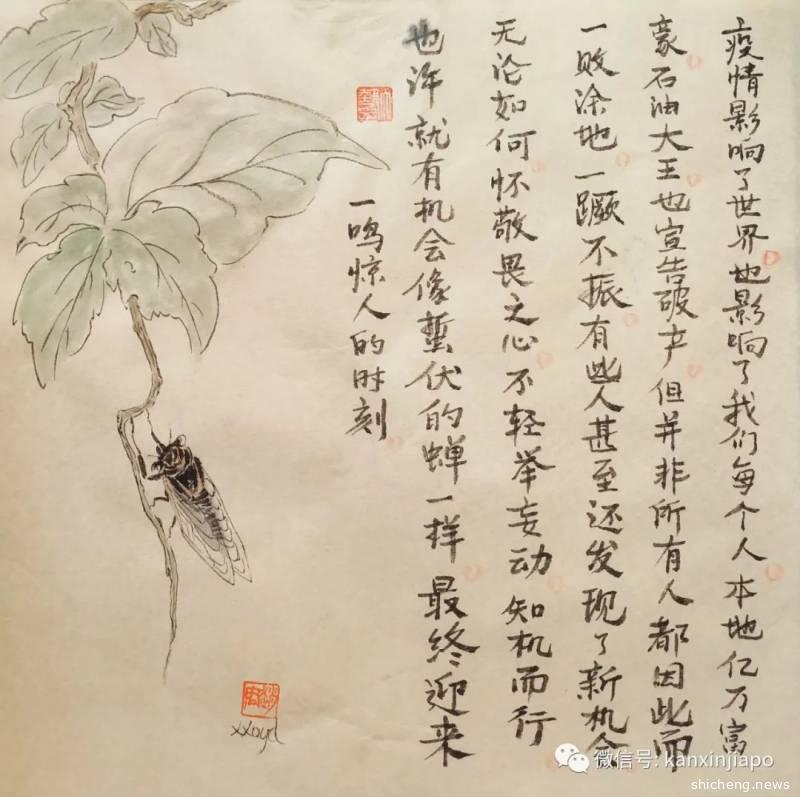 疫情影响了世界也影响了我们每个人本地亿万富
豪石油大王也宣告破产但并非所有人都因此而
一败涂地一蹶不振有些人甚至还发现了新机会
无论如何怀敬畏之心不轻举妄动知机而行
也许就有机会像蛰伏的蝉一样最终迎来
一鸣惊人的时刻
微信号: kanxinjiapo
shicheng.news